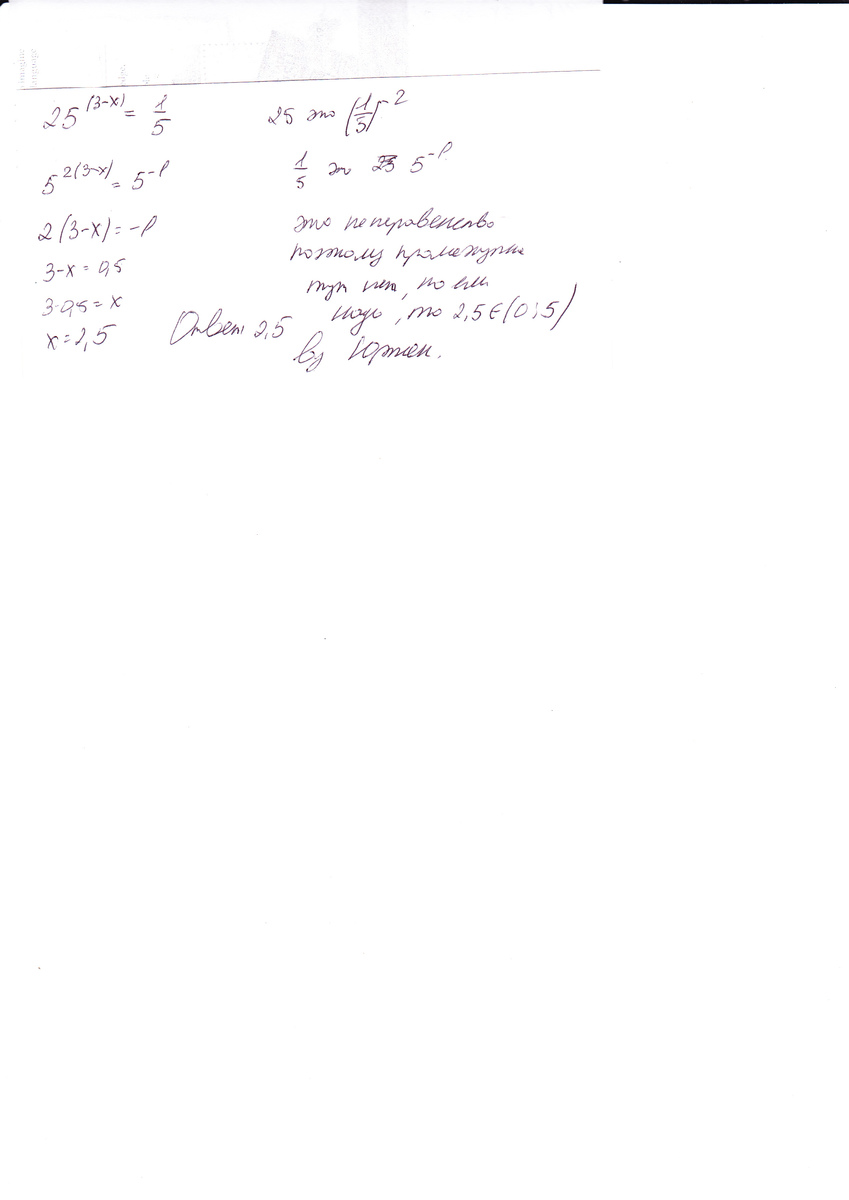 25^(3-x) = 1/5
5^2(3-x) = 5^-1
2(3-x) = -1
3-x = 0,5
3-0,5 = x
x = 2,5
Ответ 2,5
25 это (1/5)^-2
1/5 это 5^-1
это не неравенство
поэтому промежутка
тут нет, но если
надо, то 2,5 ∈ (0;5)
by